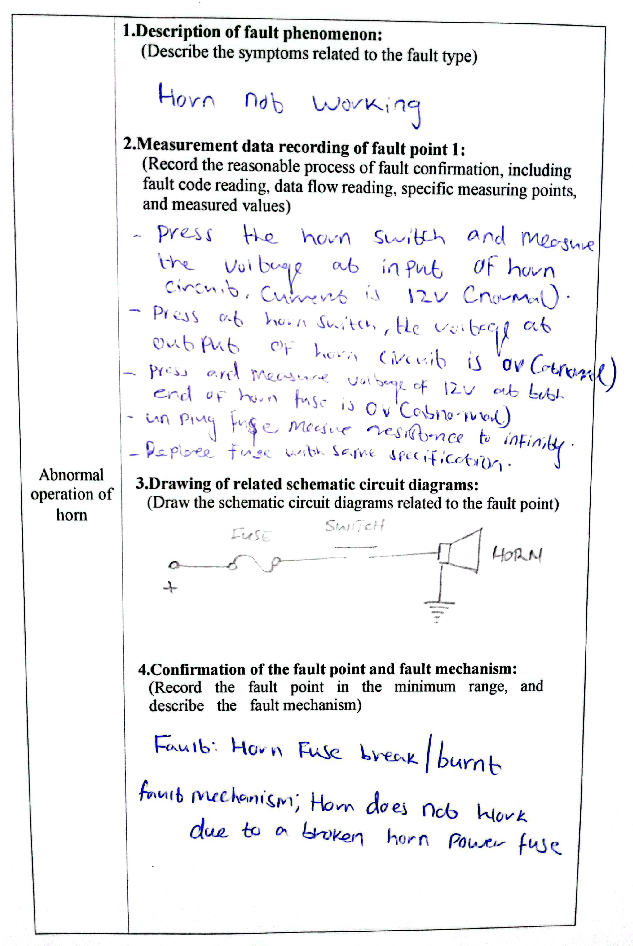 1.Description of fault phenomenon:
(Describe the symptoms related to the fault type)
Horn not working
2.Measurement data recording of fault point 1:
(Record the reasonable process of fault confirmation, including
fault code reading, data flow reading, specific measuring points,
and measured values)
- Press the horn switch and measure
the voltage at input of horn
circuit, current is 12V (normal).
- Press at horn switch, the voltage at
output of horn circuit is 0V (abnormal)
- press and measure voltage of 12V at both
end of horn fuse is 0V (abnormal)
- un plug fuse measure resistance to infinity.
- Replace fuse with same specification.
Abnormal
operation of
horn
3.Drawing of related schematic circuit diagrams:
(Draw the schematic circuit diagrams related to the fault point)
FUSE
SWITCH
HORN
+
4.Confirmation of the fault point and fault mechanism:
(Record the fault point in the minimum range, and
describe the fault mechanism)
Fault: Horn Fuse break/burnt
fault mechanism; Horn does not work
due to a broken horn power fuse